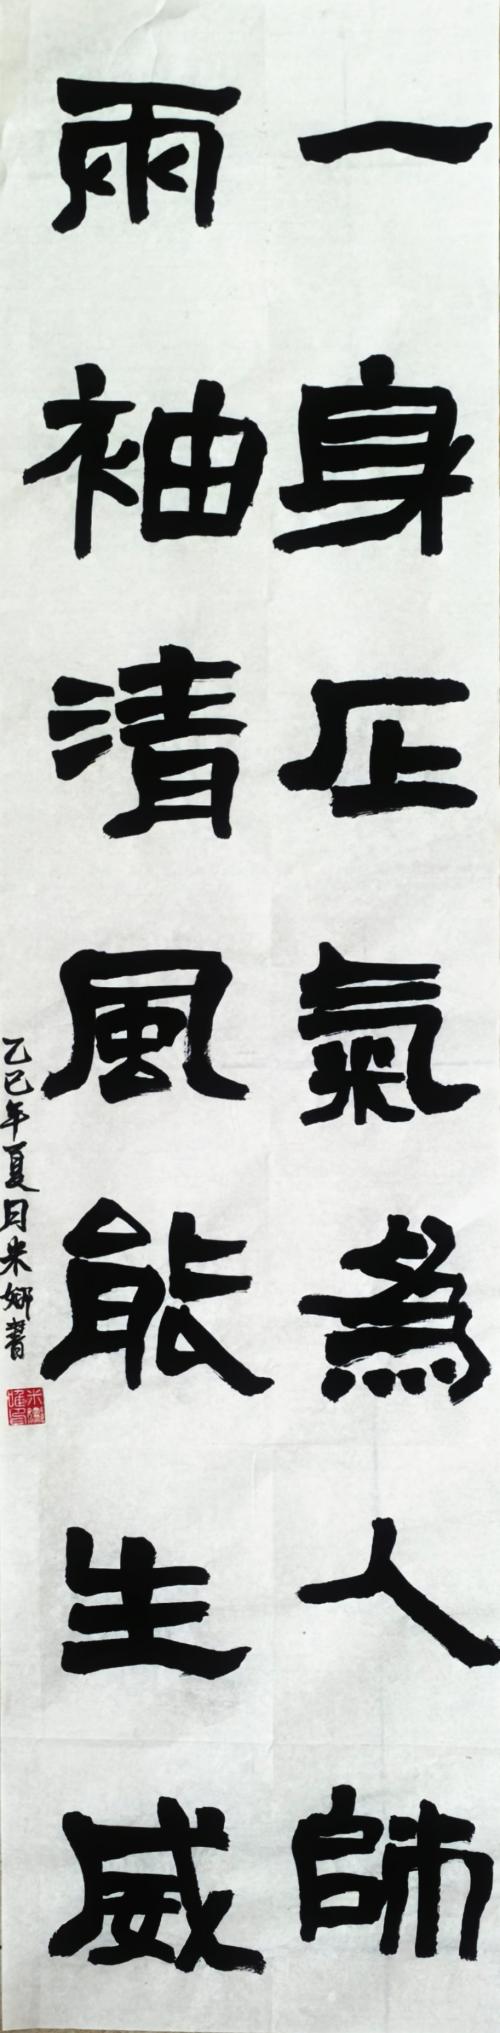 一身正氣為人師
兩袖清風能生威
乙巳年夏日米娜書